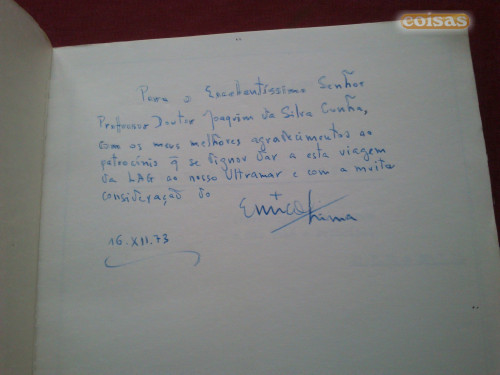 coisas
Para o Excelentíssimo Senhor
Professor Doutor Joaquim da Silva Cunha,
com os meus melhores agradecimentos ao
patrocínio q̃ se dignou dar a esta viagem
da LAG ao nosso Ultramar e com a muita
consideração do
16.XII.73